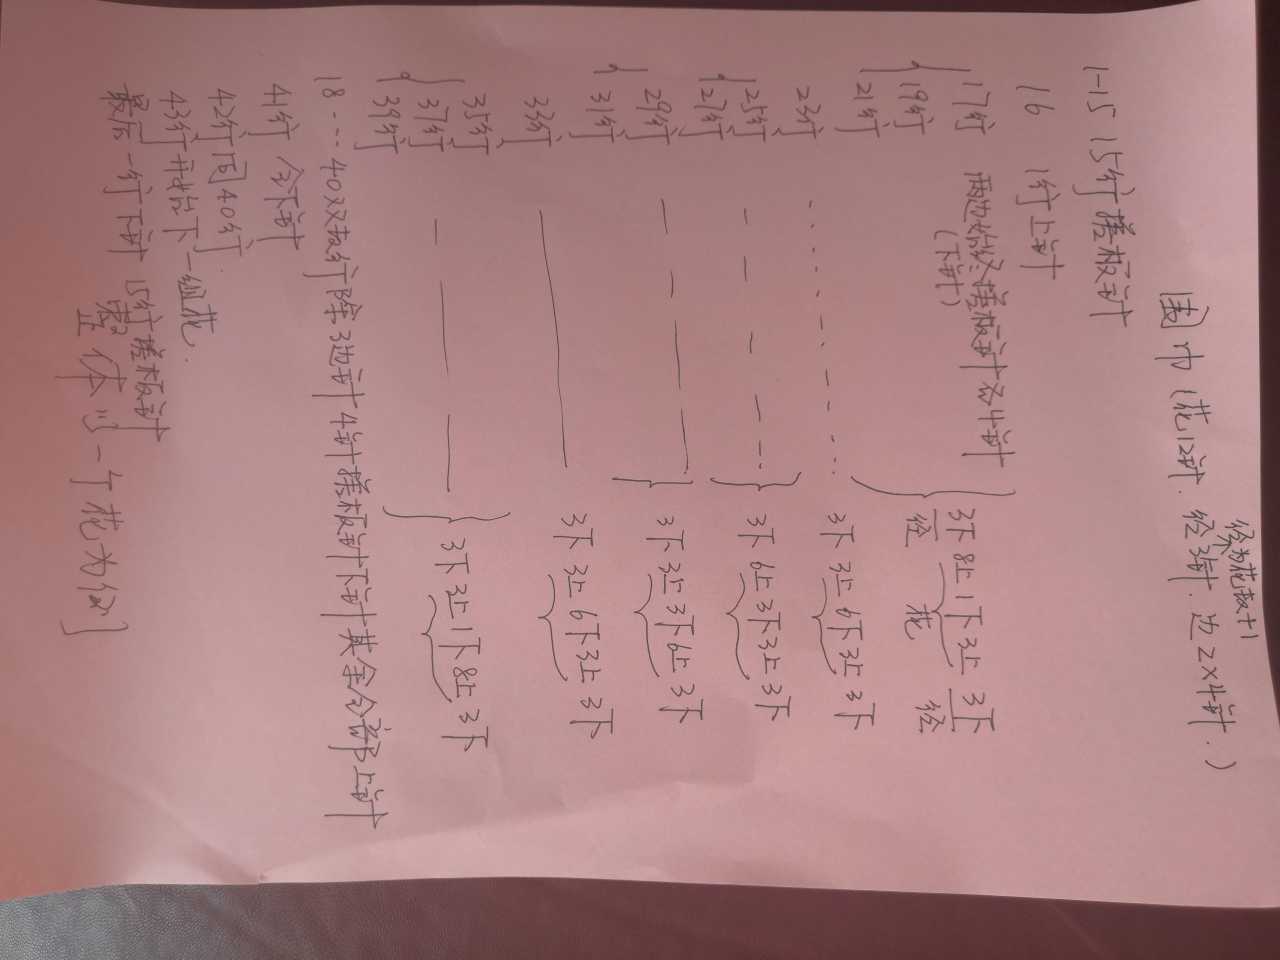 围巾（花12针．经3针．边2×4针．）
经为花数+1
1-15 15行搓板针
16 1行上针
17行 两边始终搓板针各4针
（下针）
19行
21行
3下 8上 1下 3上 3下
经 花 经
23行 3下 3上 6下 3上 3下
25行
27行
3下 6上 3下 3上 3下
29行
31行
3下 3上 3下 6上 3下
33行 3下 3上 6下 3上 3下
35行
37行
39行
3下 3上 1下 8上 3下
18 … 40双数行除3边针4针搓板针下针其余全部上针
41行 全下针
42行同40行
43行开始下一组花．
最后一行下针 15行搓板针
整体以一个花为例